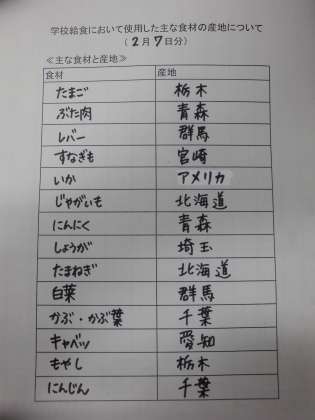 学校給食において使用した主な食材の産地について
(2月7日分)
≪主な食材と産地≫
食材 産地
たまご 栃木
ぶた肉 青森
レバー 群馬
すなぎも 宮崎
いか アメリカ
じゃがいも 北海道
にんにく 青森
しょうが 埼玉
たまねぎ 北海道
白菜 群馬
かぶ・かぶ葉 千葉
キャベツ 愛知
もやし 栃木
にんじん 千葉